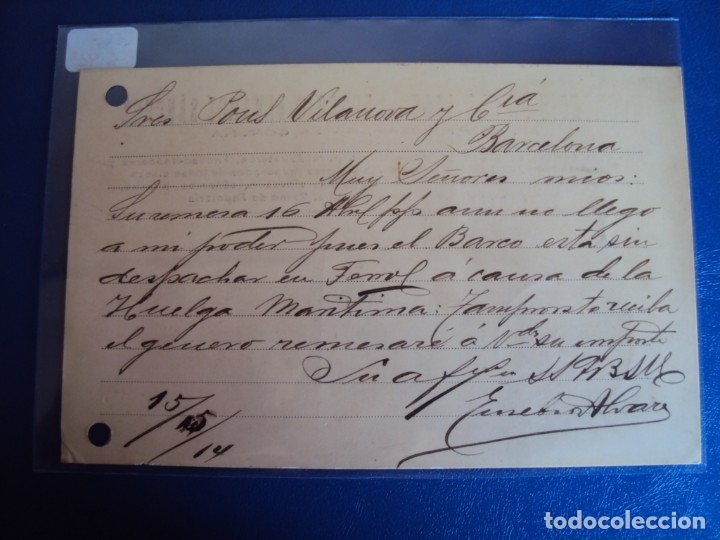 Sres Pons Vilanova y Cía
Barcelona
Muy Señores mios:
Su remesa 16 Abril ppº aun no llego
a mi poder pues el Barco está sin
despachar en Ferrol á causa de la
Huelga Maritima: Tan pronto reciba
el genero remesaré á Vdes su importe
Su af
15/5/14
Eusebio Alvarez
todocoleccion.net